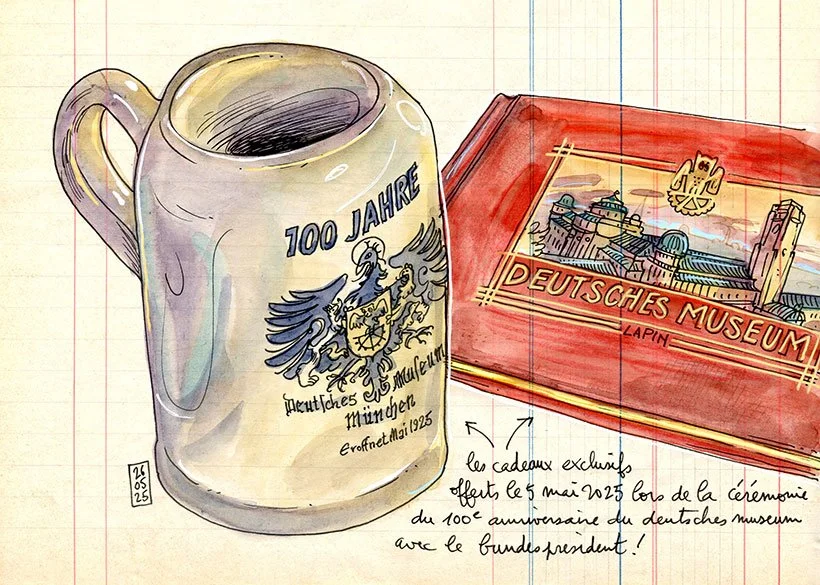 100 JAHRE
Deutsches Museum
München
Eröffnet Mai 1925
DEUTSCHES MUSEUM
LAPIN
26
05
25
les cadeaux exclusifs
offerts le 5 mai 2025 lors de la cérémonie
du 100e anniversaire du deutsches museum
avec le bundespresident !